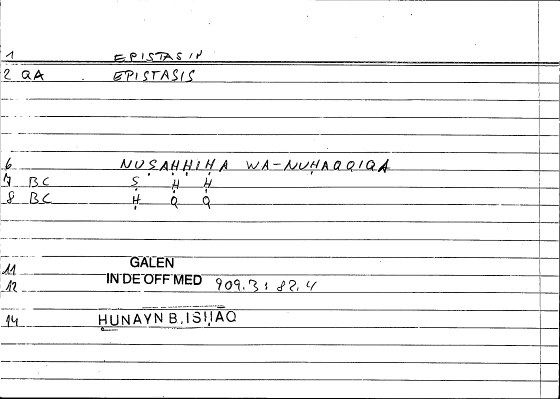 1 EPISTASIN
2 QA . EPISTASIS
6 NUṢAḤḤIḤA WA-NUḤAQQIQA
7 BC Ṣ Ḥ Ḥ
8 BC Ḥ Q Q
11 GALEN
12 IN DE OFF MED 909.3: 82.4
14 ḤUNAYN B. ISḤAQ